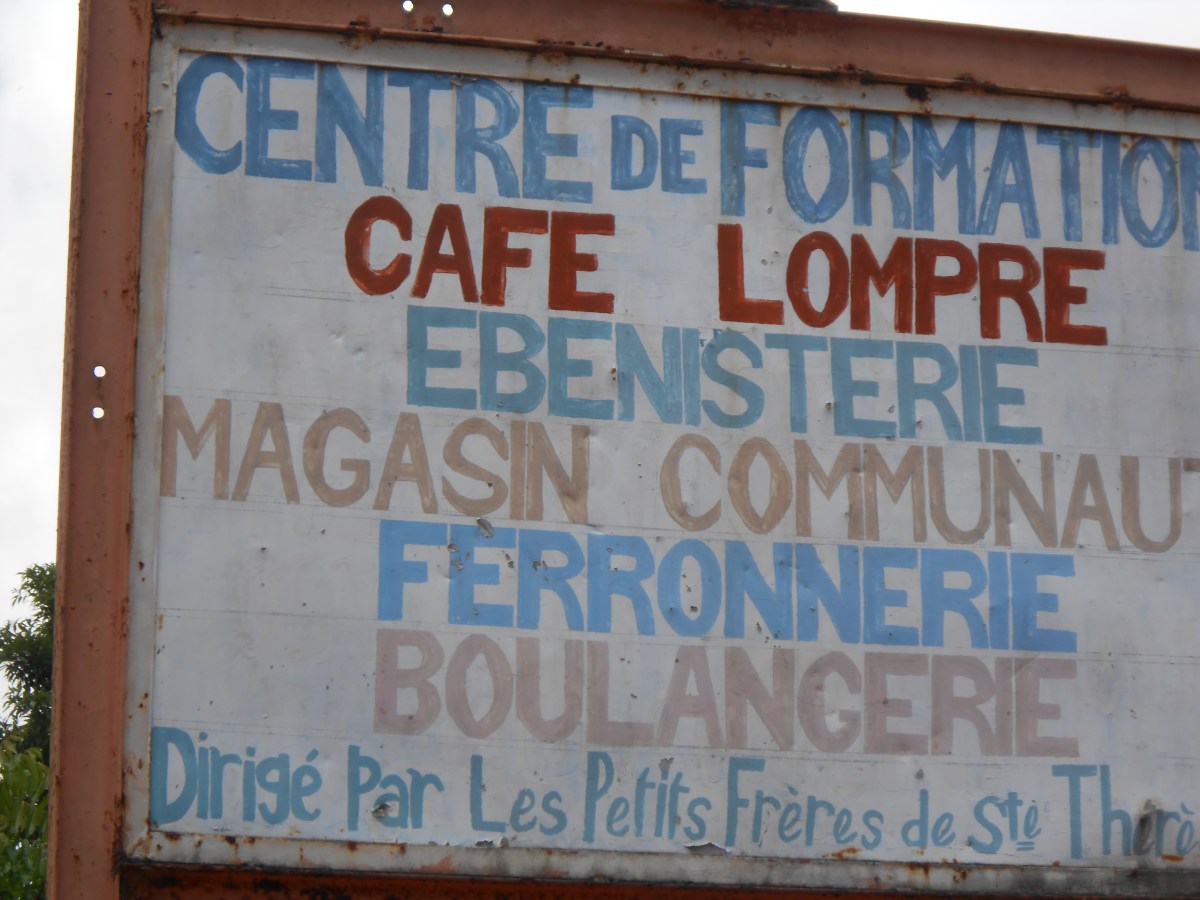 CENTRE DE FORMATION
CAFE LOMPRE
EBENISTERIE
MAGASIN COMMUNAUT
FERRONNERIE
BOULANGERIE
Dirigé Par Les Petits Frères de Ste Therè